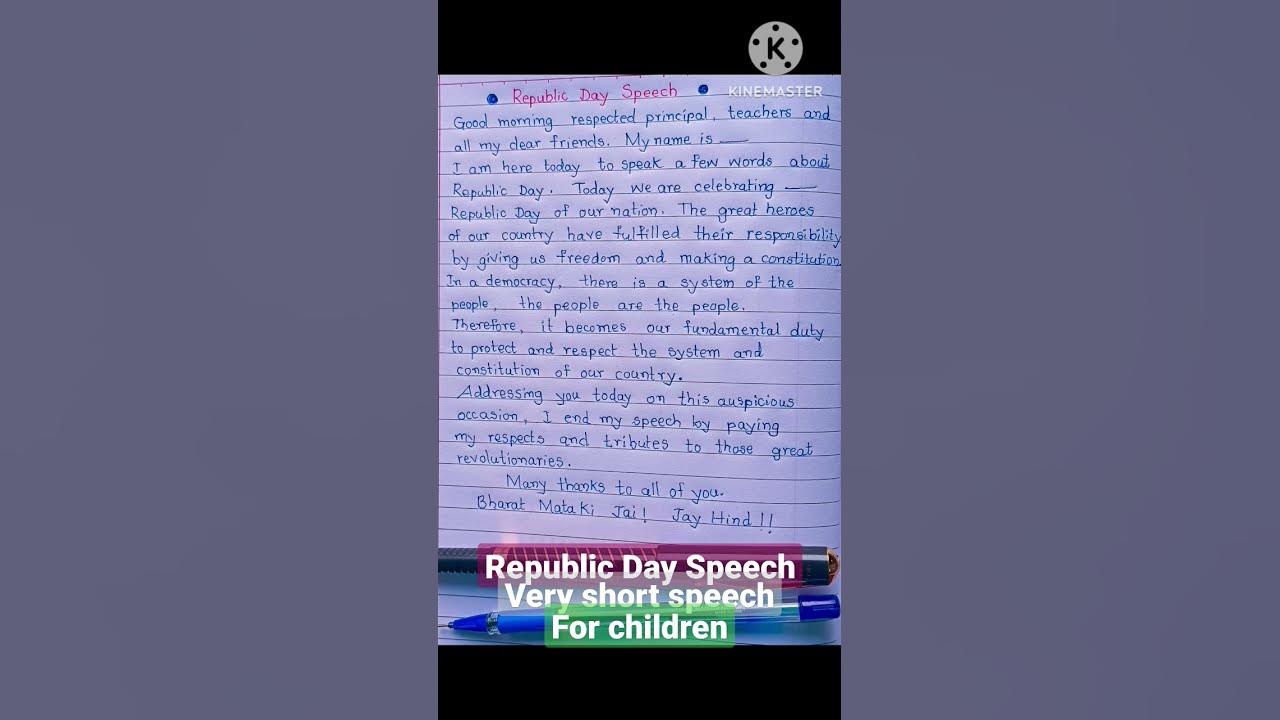 KINEMASTER
Republic Day Speech
Good morning respected principal, teachers and
all my dear friends. My name is —
I am here today to speak a few words about
Republic Day. Today we are celebrating —
Republic Day of our nation. The great heroes
of our country have fulfilled their responsibility
by giving us freedom and making a constitution.
In a democracy, there is a system of the
people, the people are the people.
Therefore, it becomes our fundamental duty
to protect and respect the system and
constitution of our country.
Addressing you today on this auspicious
occasion, I end my speech by paying
my respects and tributes to those great
revolutionaries.
Many thanks to all of you.
Bharat Mata Ki Jai! Jay Hind!!
Republic Day Speech
Very short speech
For children